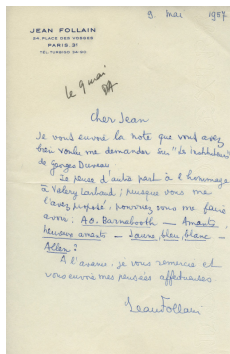 9. mai 1957
JEAN FOLLAIN
24, PLACE DES VOSGES
PARIS. 3e
TÉL. TURBIGO 34-80
le 9 mai
cher Jean
Je vous envoie la note que vous avez
bien voulu me demander sur "Les Instituteurs"
de Georges Duveau
Je pense d'autre part à l'hommage
à Valery Larbaud ; puisque vous me
l'avez proposé, pourriez vous me faire
avoir : A.O. Barnabooth — Amants
heureux amants — Jaune, bleu, blanc —
Allen ?
A l'avance, je vous remercie et
vous envoie mes pensées affectueuses
Jean Follain